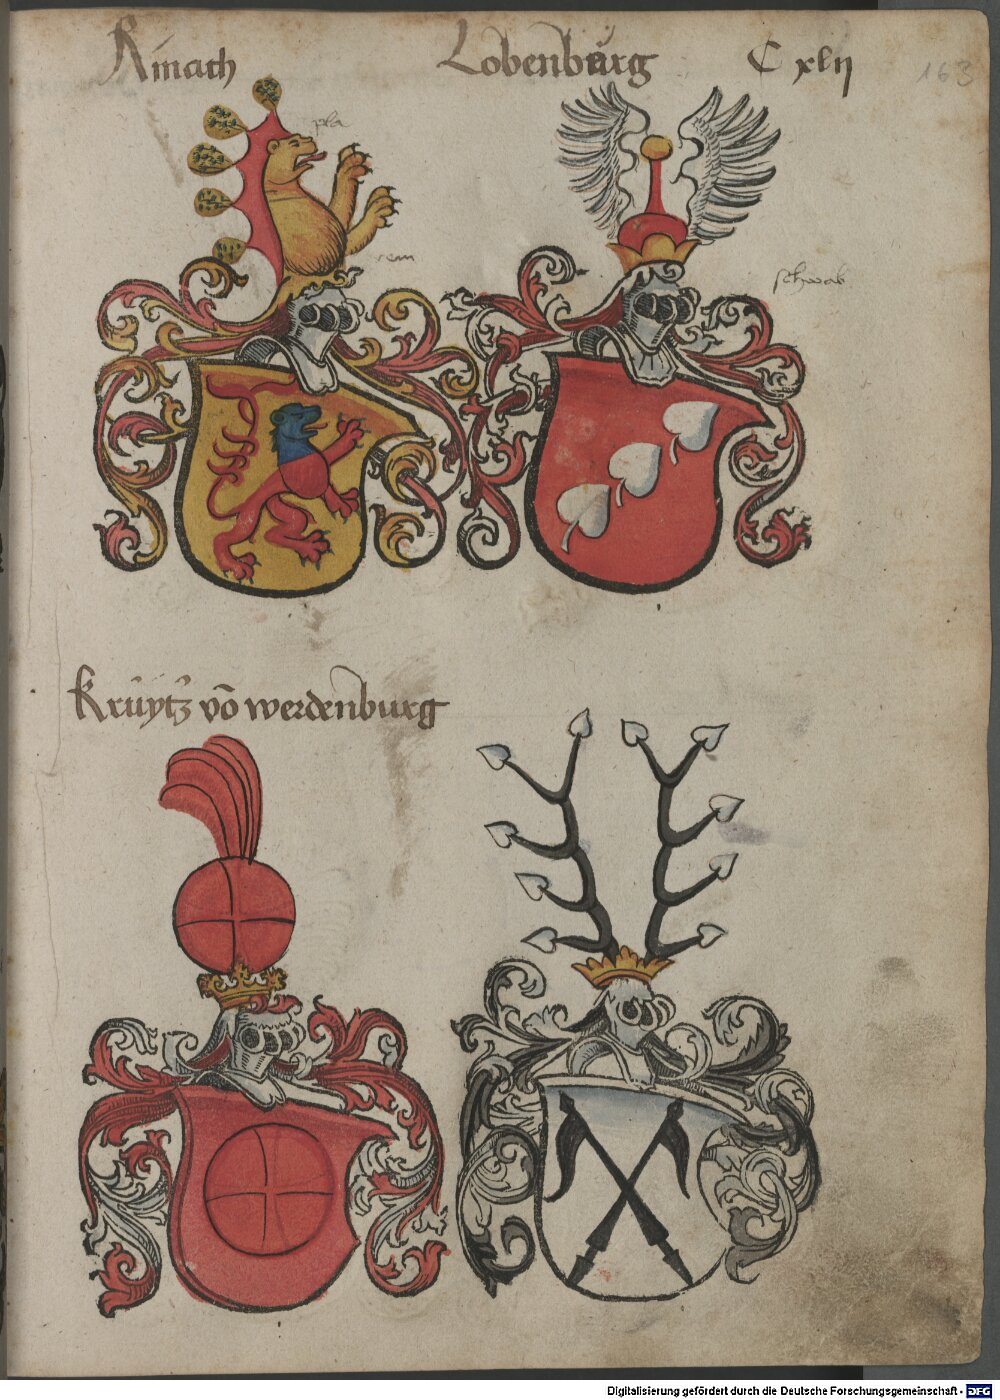 Rinach
Lobenburg
C xlij
163
schwab
Krüytz võ werdenburg
Digitalisierung gefördert durch die Deutsche Forschungsgemeinschaft - DFG